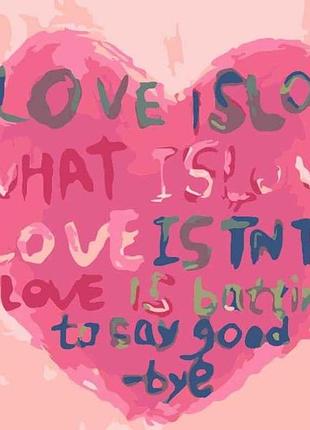 LOVE IS LO
WHAT IS LOV
LOVE IS TNT
LOVE IS battin
to say good
-bye